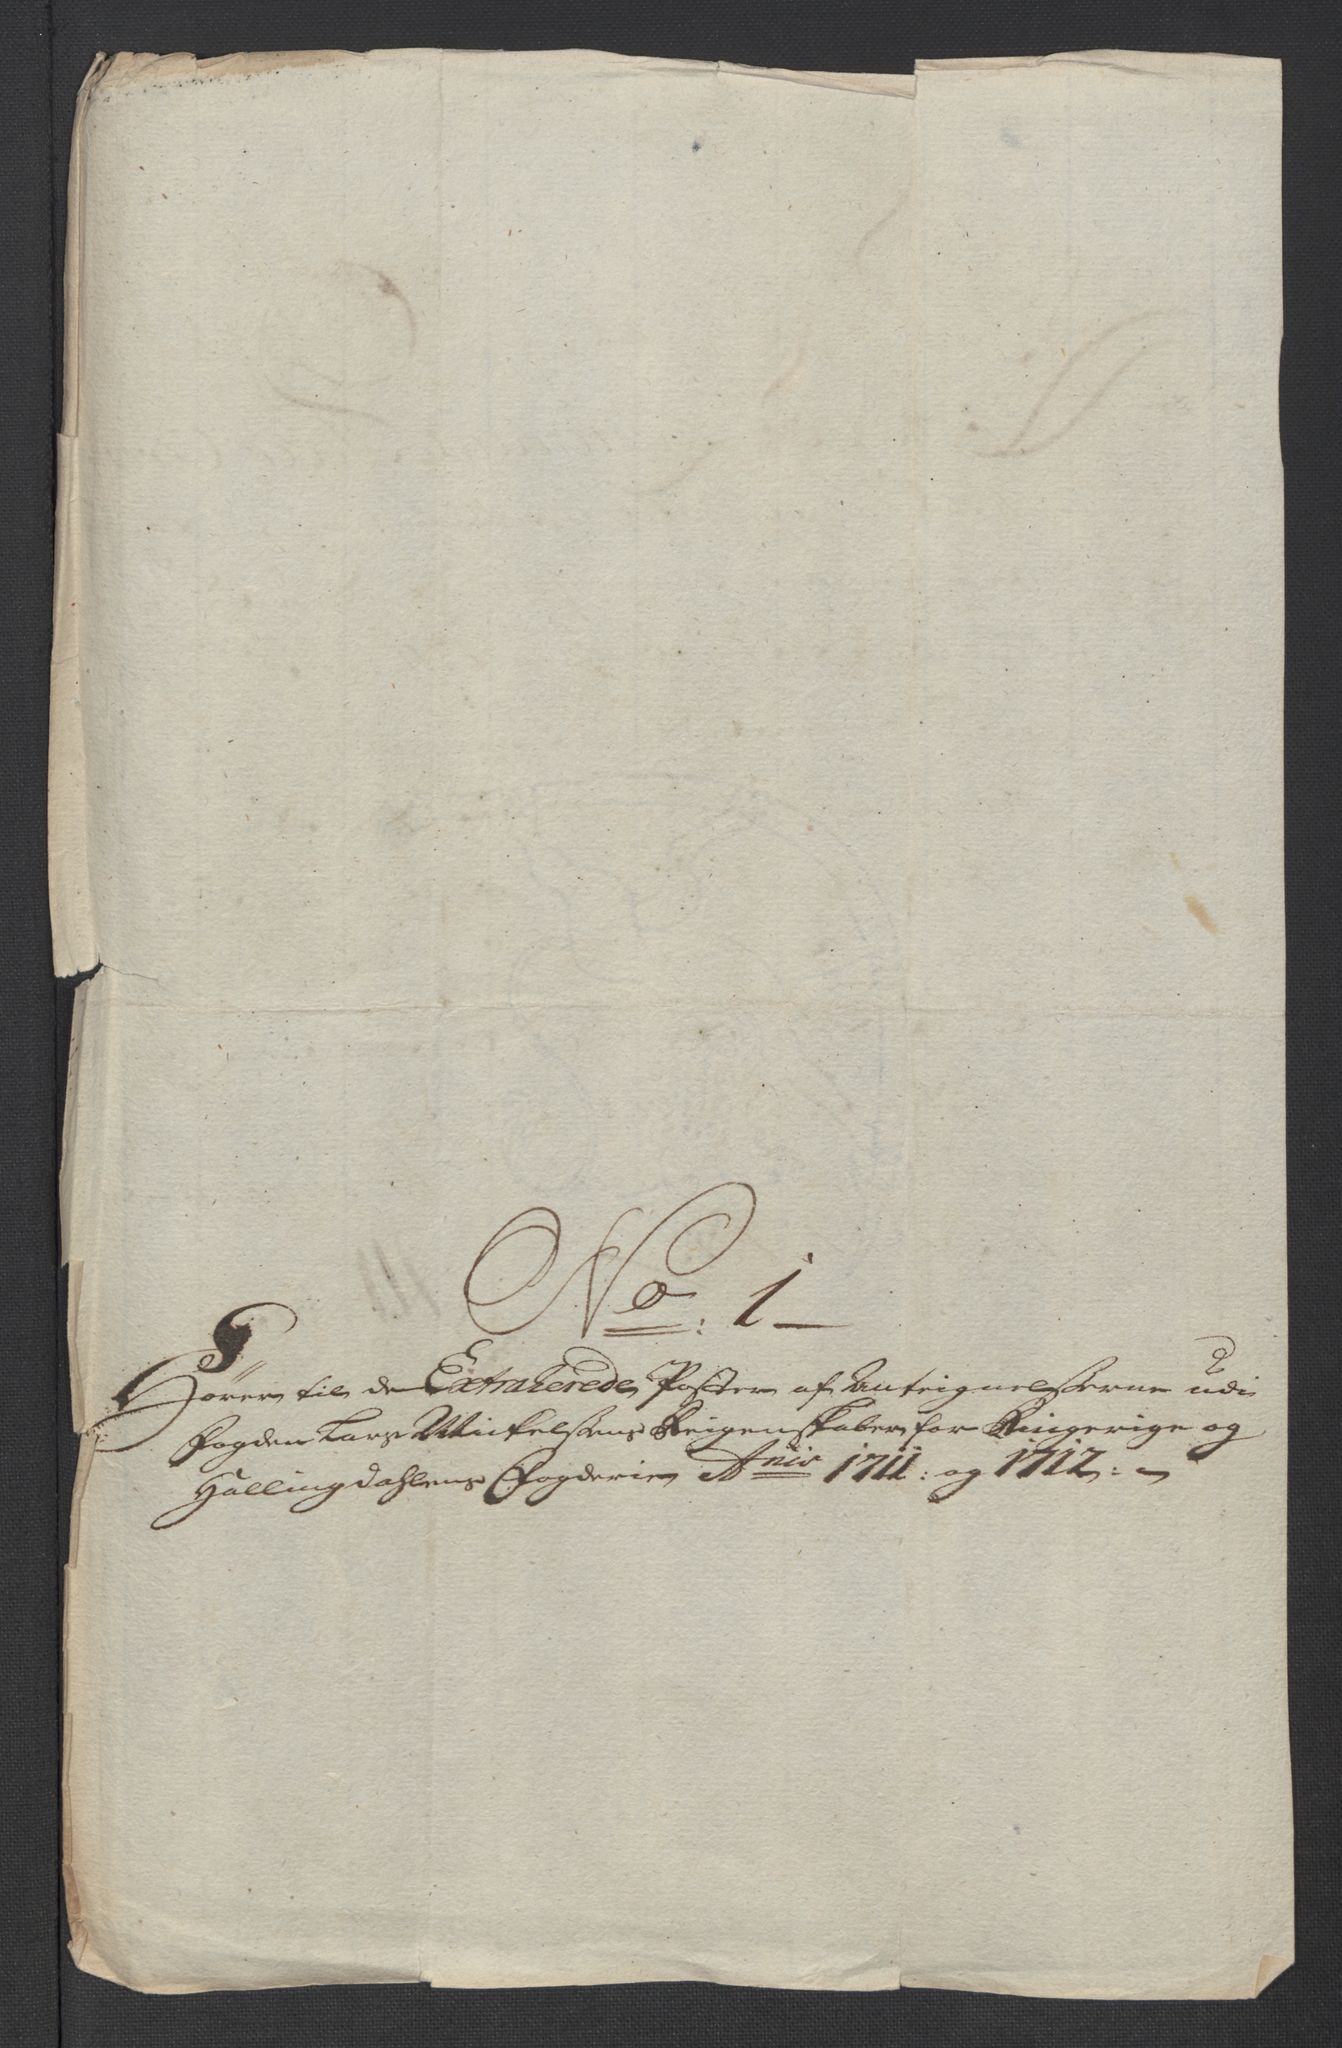 No: 1
Hører til de Extraherede Poster af Anteignelserne udi
fogden Lars Mickelsens Reigenskaber for Ringerige og
Hallingdahlens fogderie Anis 1711: og 1712: